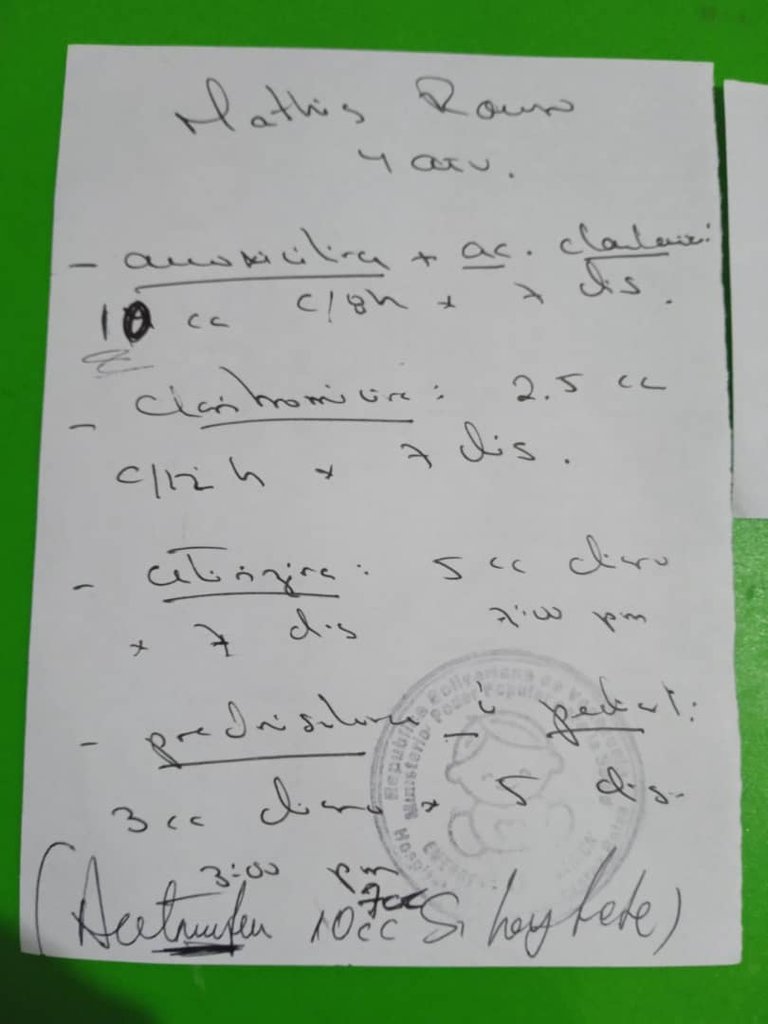 Mathis
4 años.
- amoxicilina + ac. clavulanic:
10 cc c/8h x 7 dis.
- Claritromicina: 2.5 cc
c/12 h x 7 dis.
- cetirizina: 5 cc diario
x 7 dis 7:00 pm
- prednisolona pediat:
3 cc diario x 5 dis.
3:00 pm
7cc
(Acetaminofen 10cc Si hay fiebre)
República Bolivariana de
Ministerio Poder Popular
Hospital